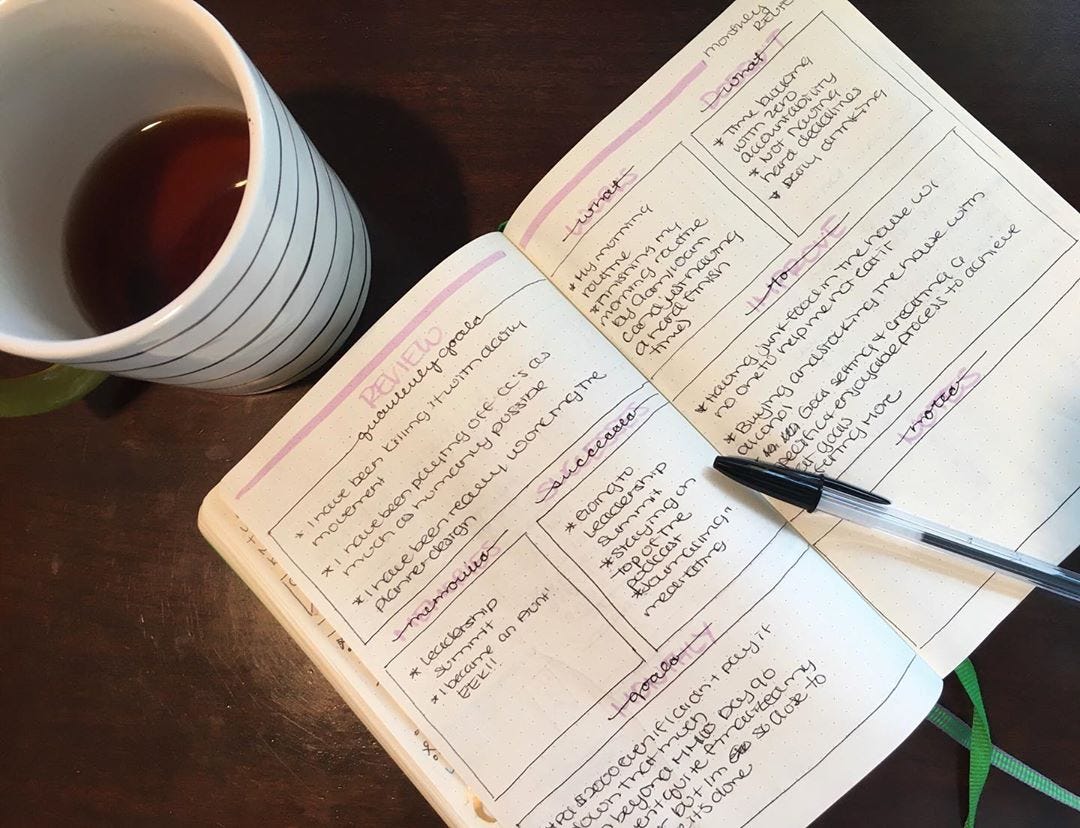 REVIEW
quarterly goals
* I have been killing it with dairy
movement
* I have been paying off CC's as
much as humanly possible
* I have been really working the
planner design
MEMORIES
memories
* Leadership
summit
* I became an Aunt!
EEK!!!
SUCCESSES
successes
* Going to
Leadership
summit
* staying on
top of the
podcast
* Journaling
meditating
MONTHLY
goals
$2000 even if I can't pay it
down that much
beyond Day 90
quite finalized my
but I'm so close to
it's done
monthly
WORKS
what
* My morning
routine
* Finishing my
morning routine
by 9am/10am
and yes making
a hard finish
time
DOESN'T
what
* Time blocking
with zero
accountability
* Not having
hard deadlines
* Daily drinking
IMPROVE
to
* Having junk food in the house w/
no one to help me not eat it
* Buying and stocking the house with
alcohol
Goal setting & creating a
specific & enjoyable process to achieve
goals
Getting More
NOTES
notes